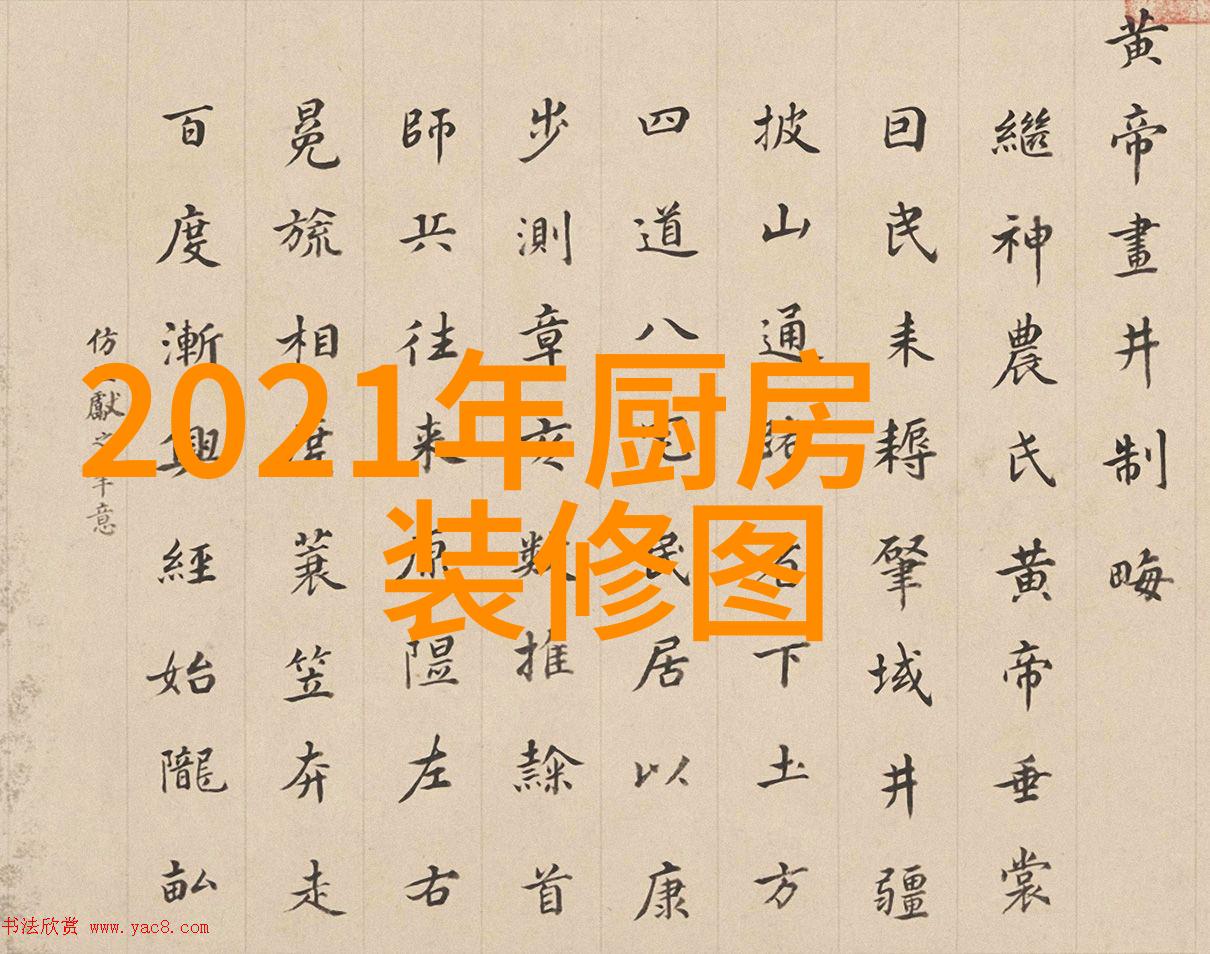 黄帝畫井制畮
繼神農氏黄帝垂裳
囙民耒耨肇域井疆
披山通下土方
四道八民居以康
步測章亥數推隸首
師兵往来原隰左右
冕旒相蓑笠奔走
百度漸興經始隴畝
仿獻之筆意
2021年厨房
装修图
书法欣赏 www.yac8.com